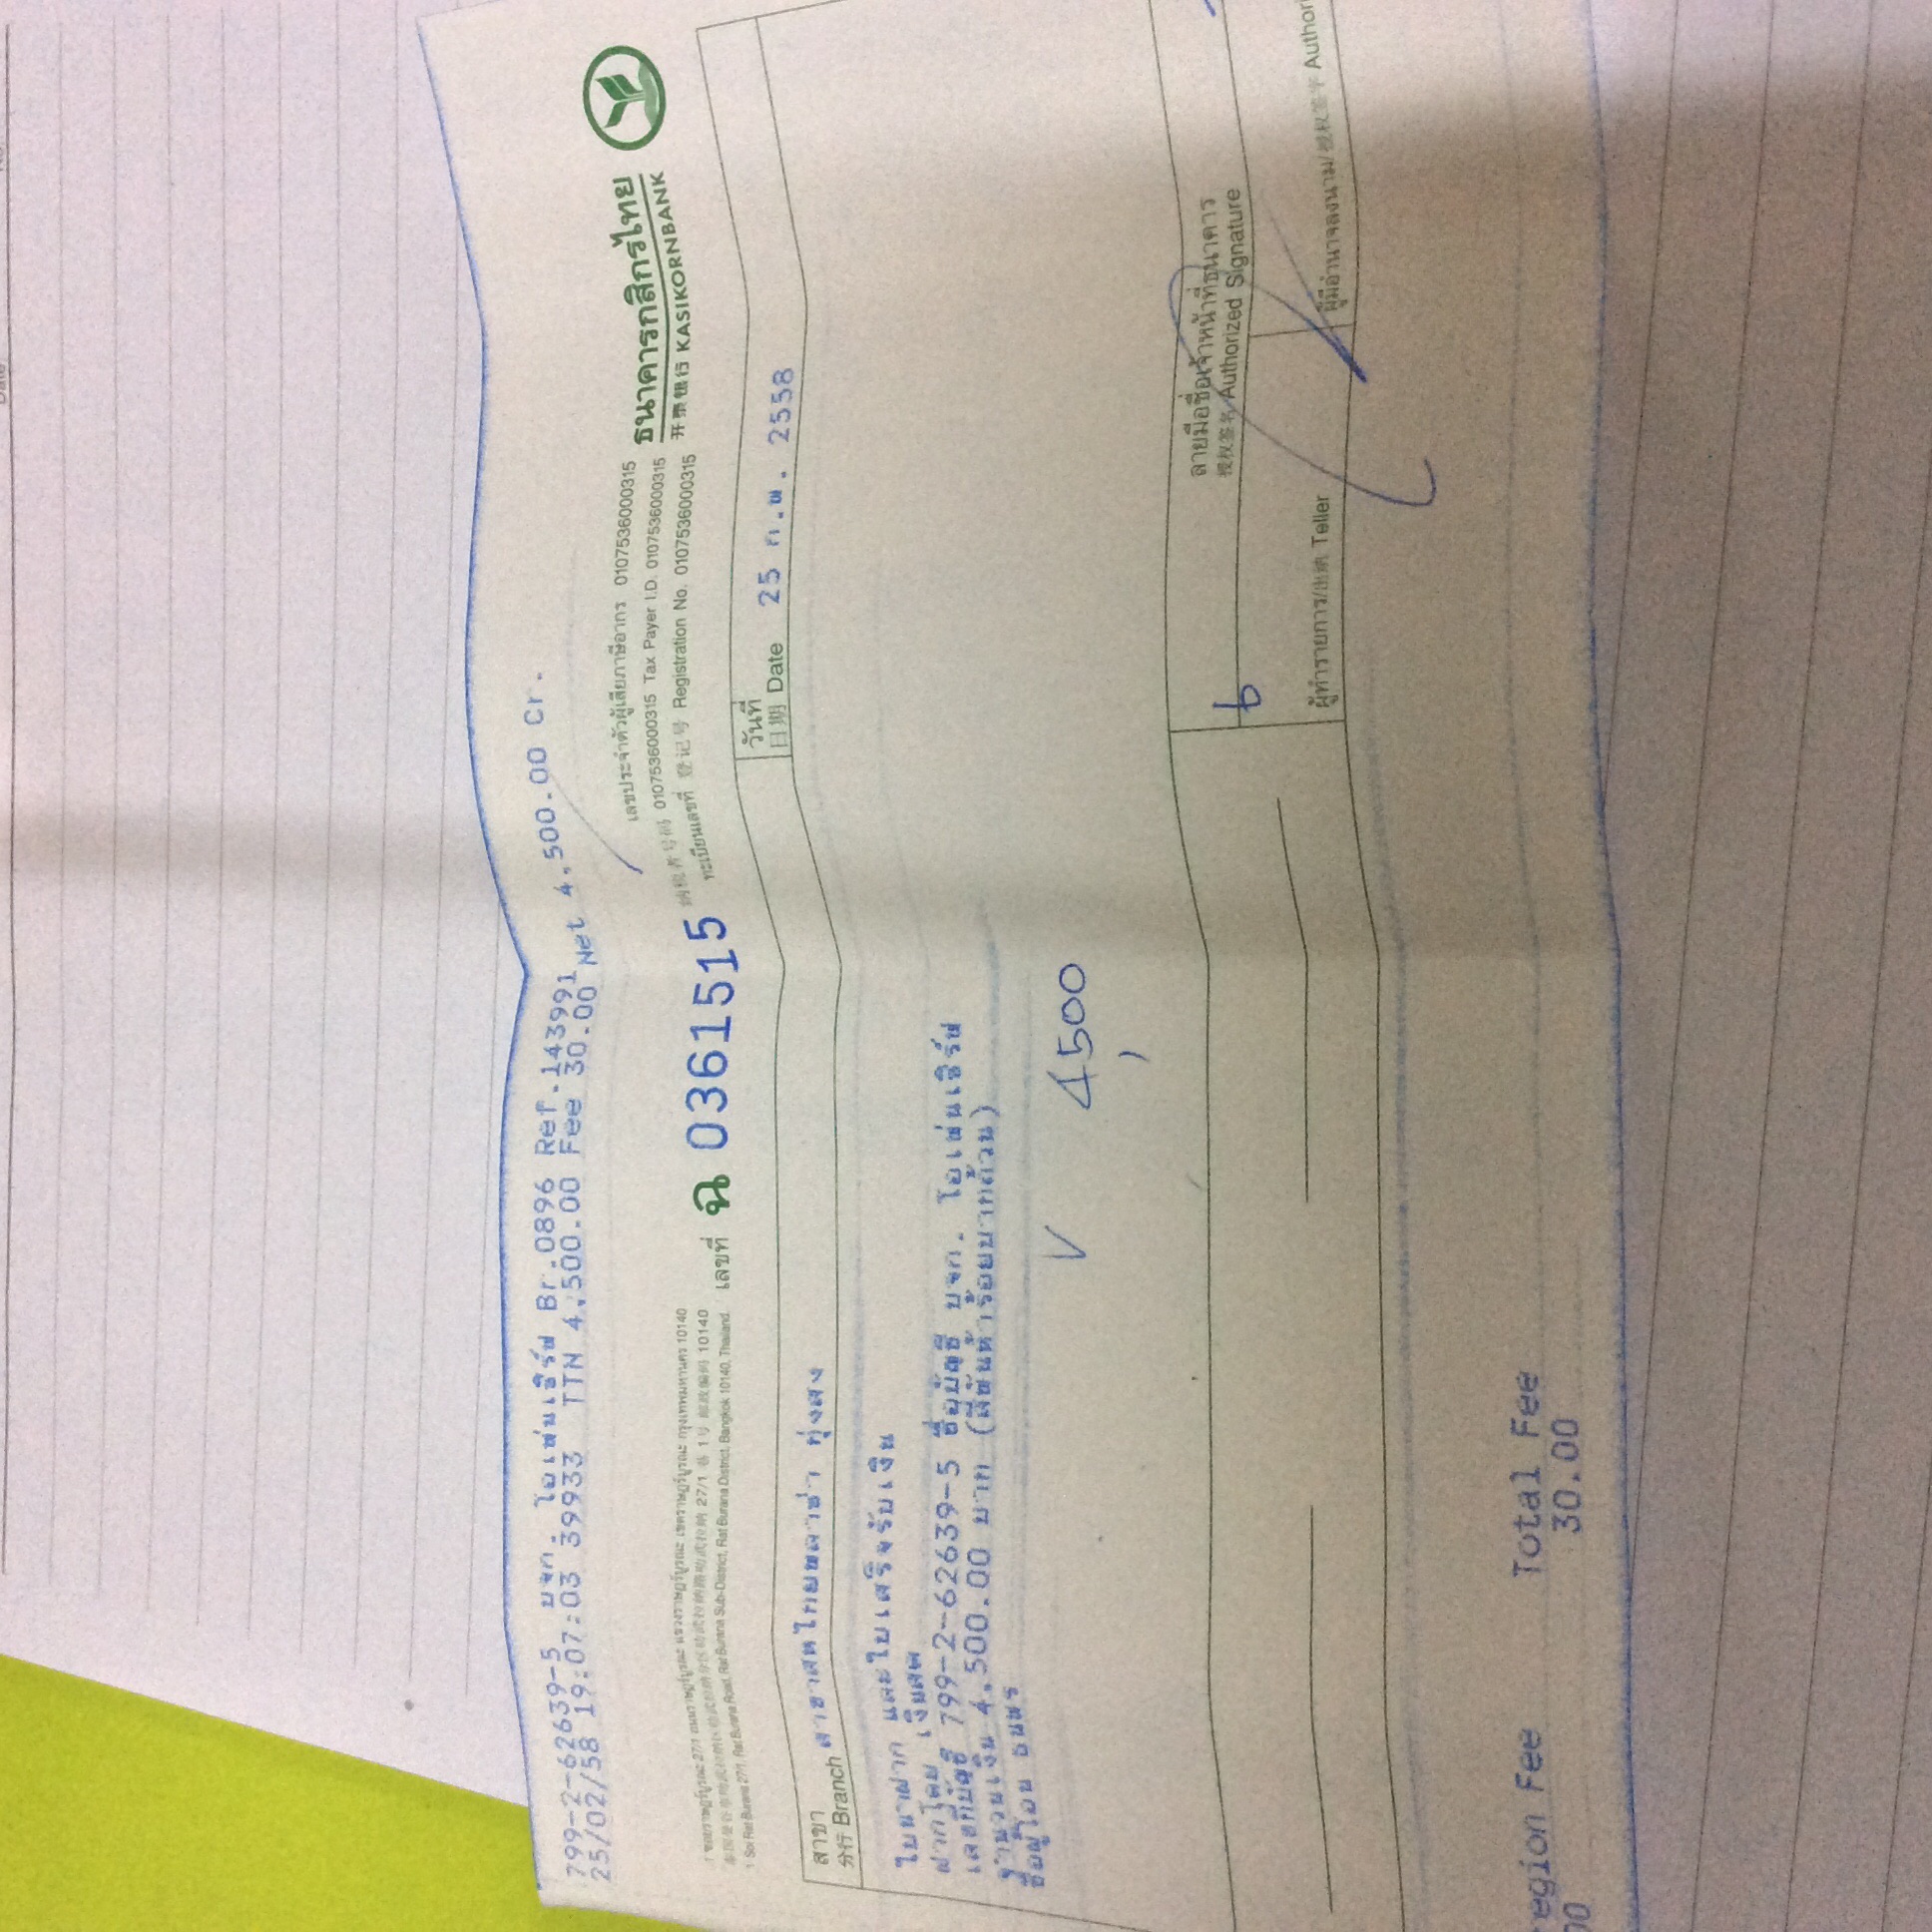 799-2-62639-5 บจก. โอเพ่นเซิร์ฟ Br.0896 Ref.143991
25/02/58 19:07:03 39933 TTN 4,500.00 Fee 30.00 Net 4,500.00 Cr.
1 ซอยราษฎร์บูรณะ 27/1 ถนนราษฎร์บูรณะ แขวงราษฎร์บูรณะ เขตราษฎร์บูรณะ กรุงเทพมหานคร 10140
27/1 1 10140
1 Soi Rat Burana 27/1, Rat Burana Road, Rat Burana Sub-District, Rat Burana District, Bangkok 10140, Thailand.
เลขที่ ฉ 0361515
เลขประจำตัวผู้เสียภาษีอากร 0107536000315
纳税者号码 0107536000315 Tax Payer I.D. 0107536000315
ทะเบียนเลขที่ 登记号 Registration No. 0107536000315
ธนาคารกสิกรไทย
开泰银行 KASIKORNBANK
สาขา
分行 Branch สาขาสหไทยพลาซ่า ทุ่งสง
วันที่
日期 Date 25 ก.พ. 2558
ใบนำฝาก และใบเสร็จรับเงิน
ฝากโดย เงินสด
เลขที่บัญชี 799-2-62639-5 ชื่อบัญชี บจก. โอเพ่นเซิร์ฟ
จำนวนเงิน 4,500.00 บาท (สี่พันห้าร้อยบาทถ้วน)
ชื่อผู้โอน ธนพร
4,500
ลายมือชื่อเจ้าหน้าที่ธนาคาร
授权签名 Authorized Signature
ผู้ทำรายการ/出纳 Teller
ผู้มีอำนาจลงนาม/授权签字 Author
egion Fee Total Fee
00 30.00
Date